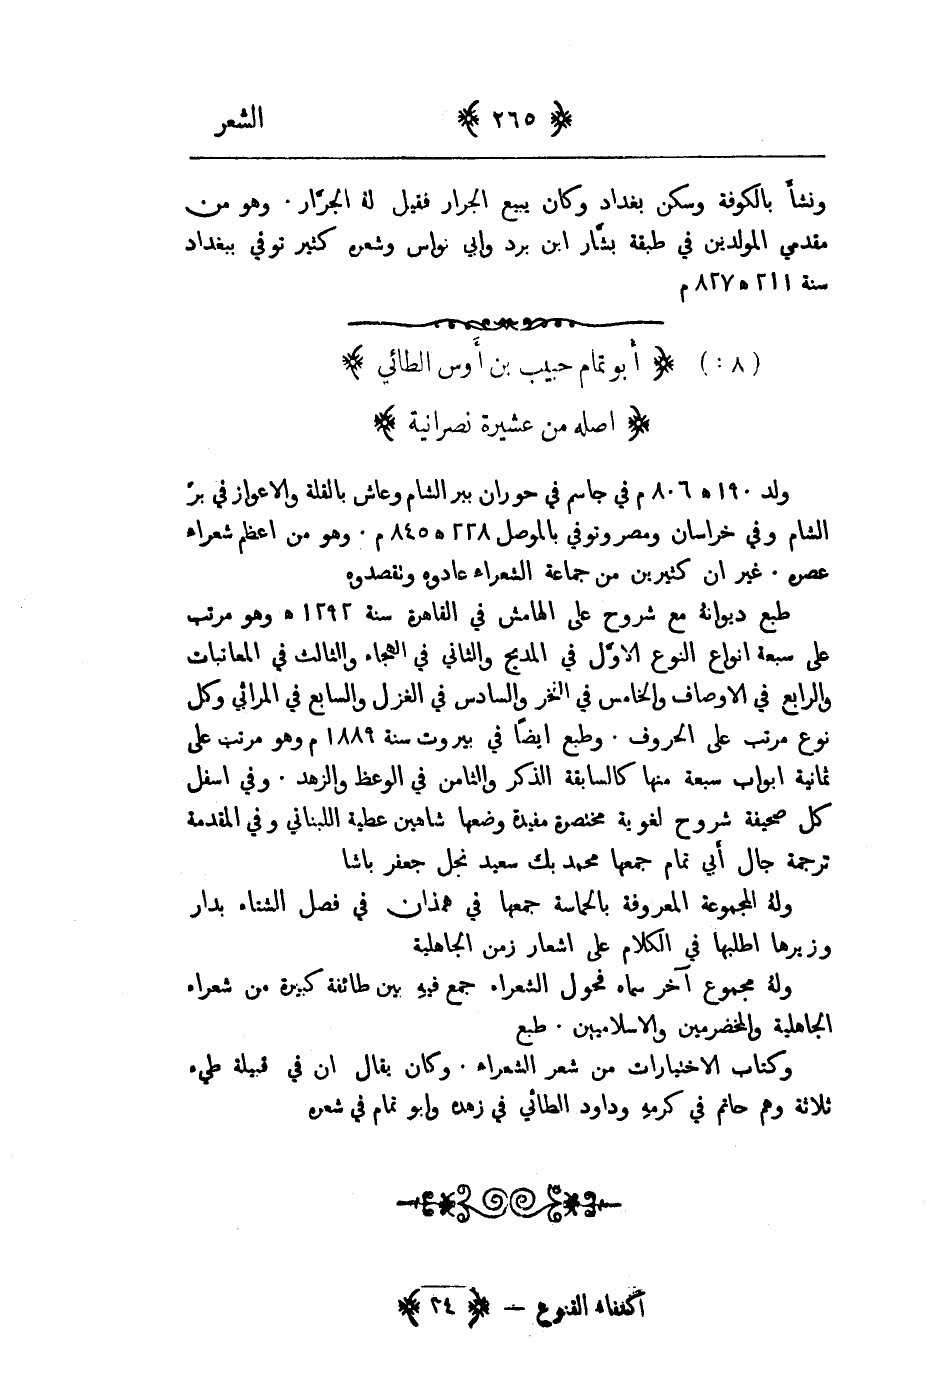 الشعر ﴿ ٢٦٥ ﴾
ونشأ بالكوفة وسكن بغداد وكان يبيع الجرار فقيل لهُ الجرَّار ٠ وهو من
مقدمي المولدين في طبقة بشَّار ابن برد وابي نواس وشعره كثير توفي ببغداد
سنة ٢١١ ه ٨٢٧ م
( ٨ : ) ﴿ أَبو تمام حبيب بن أَوس الطائي ﴾
﴿ اصله من عشيرة نصرانية ﴾
ولد ١٩٠ ه ٨٠٦ م في جاسم في حوران ببر الشام وعاش بالقلة والاعواز في برّ
الشام وفي خراسان ومصر وتوفي بالموصل ٢٢٨ ه ٨٤٥ م ٠ وهو من اعظم شعراء
عصره ٠ غير ان كثيرين من جماعة الشعراء عادوه وتقصدوه
طبع ديوانهُ مع شروح على الهامش في القاهرة سنة ١٢٩٢ ه وهو مرتب
على سبعة انواع النوع الاوّل في المديح والثاني في الهجاء والثالث في المعاتبات
والرابع في الاوصاف والخامس في الفخر والسادس في الغزل والسابع في المراثي وكل
نوع مرتب على الحروف ٠ وطبع ايضًا في بيروت سنة ١٨٨٩ م وهو مرتب على
ثمانية ابواب سبعة منها كالسابقة الذكر والثامن في الوعظ والزهد ٠ وفي اسفل
كل صحيفة شروح لغوية مختصرة مفيدة وضعها شاهين عطية اللبناني وفي المقدمة
ترجمة حال أبي تمام جمعها محمد بك سعيد نجل جعفر باشا
ولهُ المجموعة المعروفة بالحماسة جمعها في همذان في فصل الشتاء بدار
وزيرها اطلبها في الكلام على اشعار زمن الجاهلية
ولهُ مجموع آخر سماه فحول الشعراء جمع فيهِ بين طائفة كبيرة من شعراء
الجاهلية والمخضرمين والاسلاميين ٠ طبع
وكتاب الاختيارات من شعر الشعراء ٠ وكان يقال ان في قبيلة طيء
ثلاثة وهم حاتم في كرمهِ وداود الطائي في زهده وابو تمام في شعره
اكتفاء القنوع — ﴿ ٣٤ ﴾